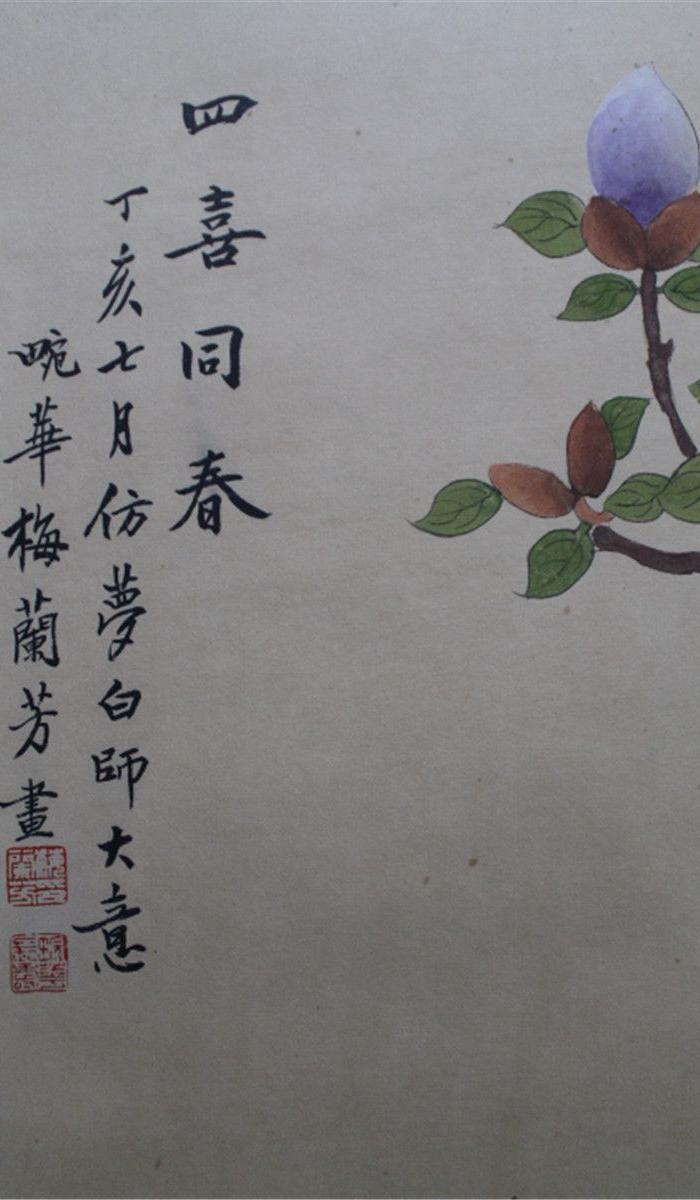 四喜同春
丁亥七月仿夢白師大意
畹華梅蘭芳畫